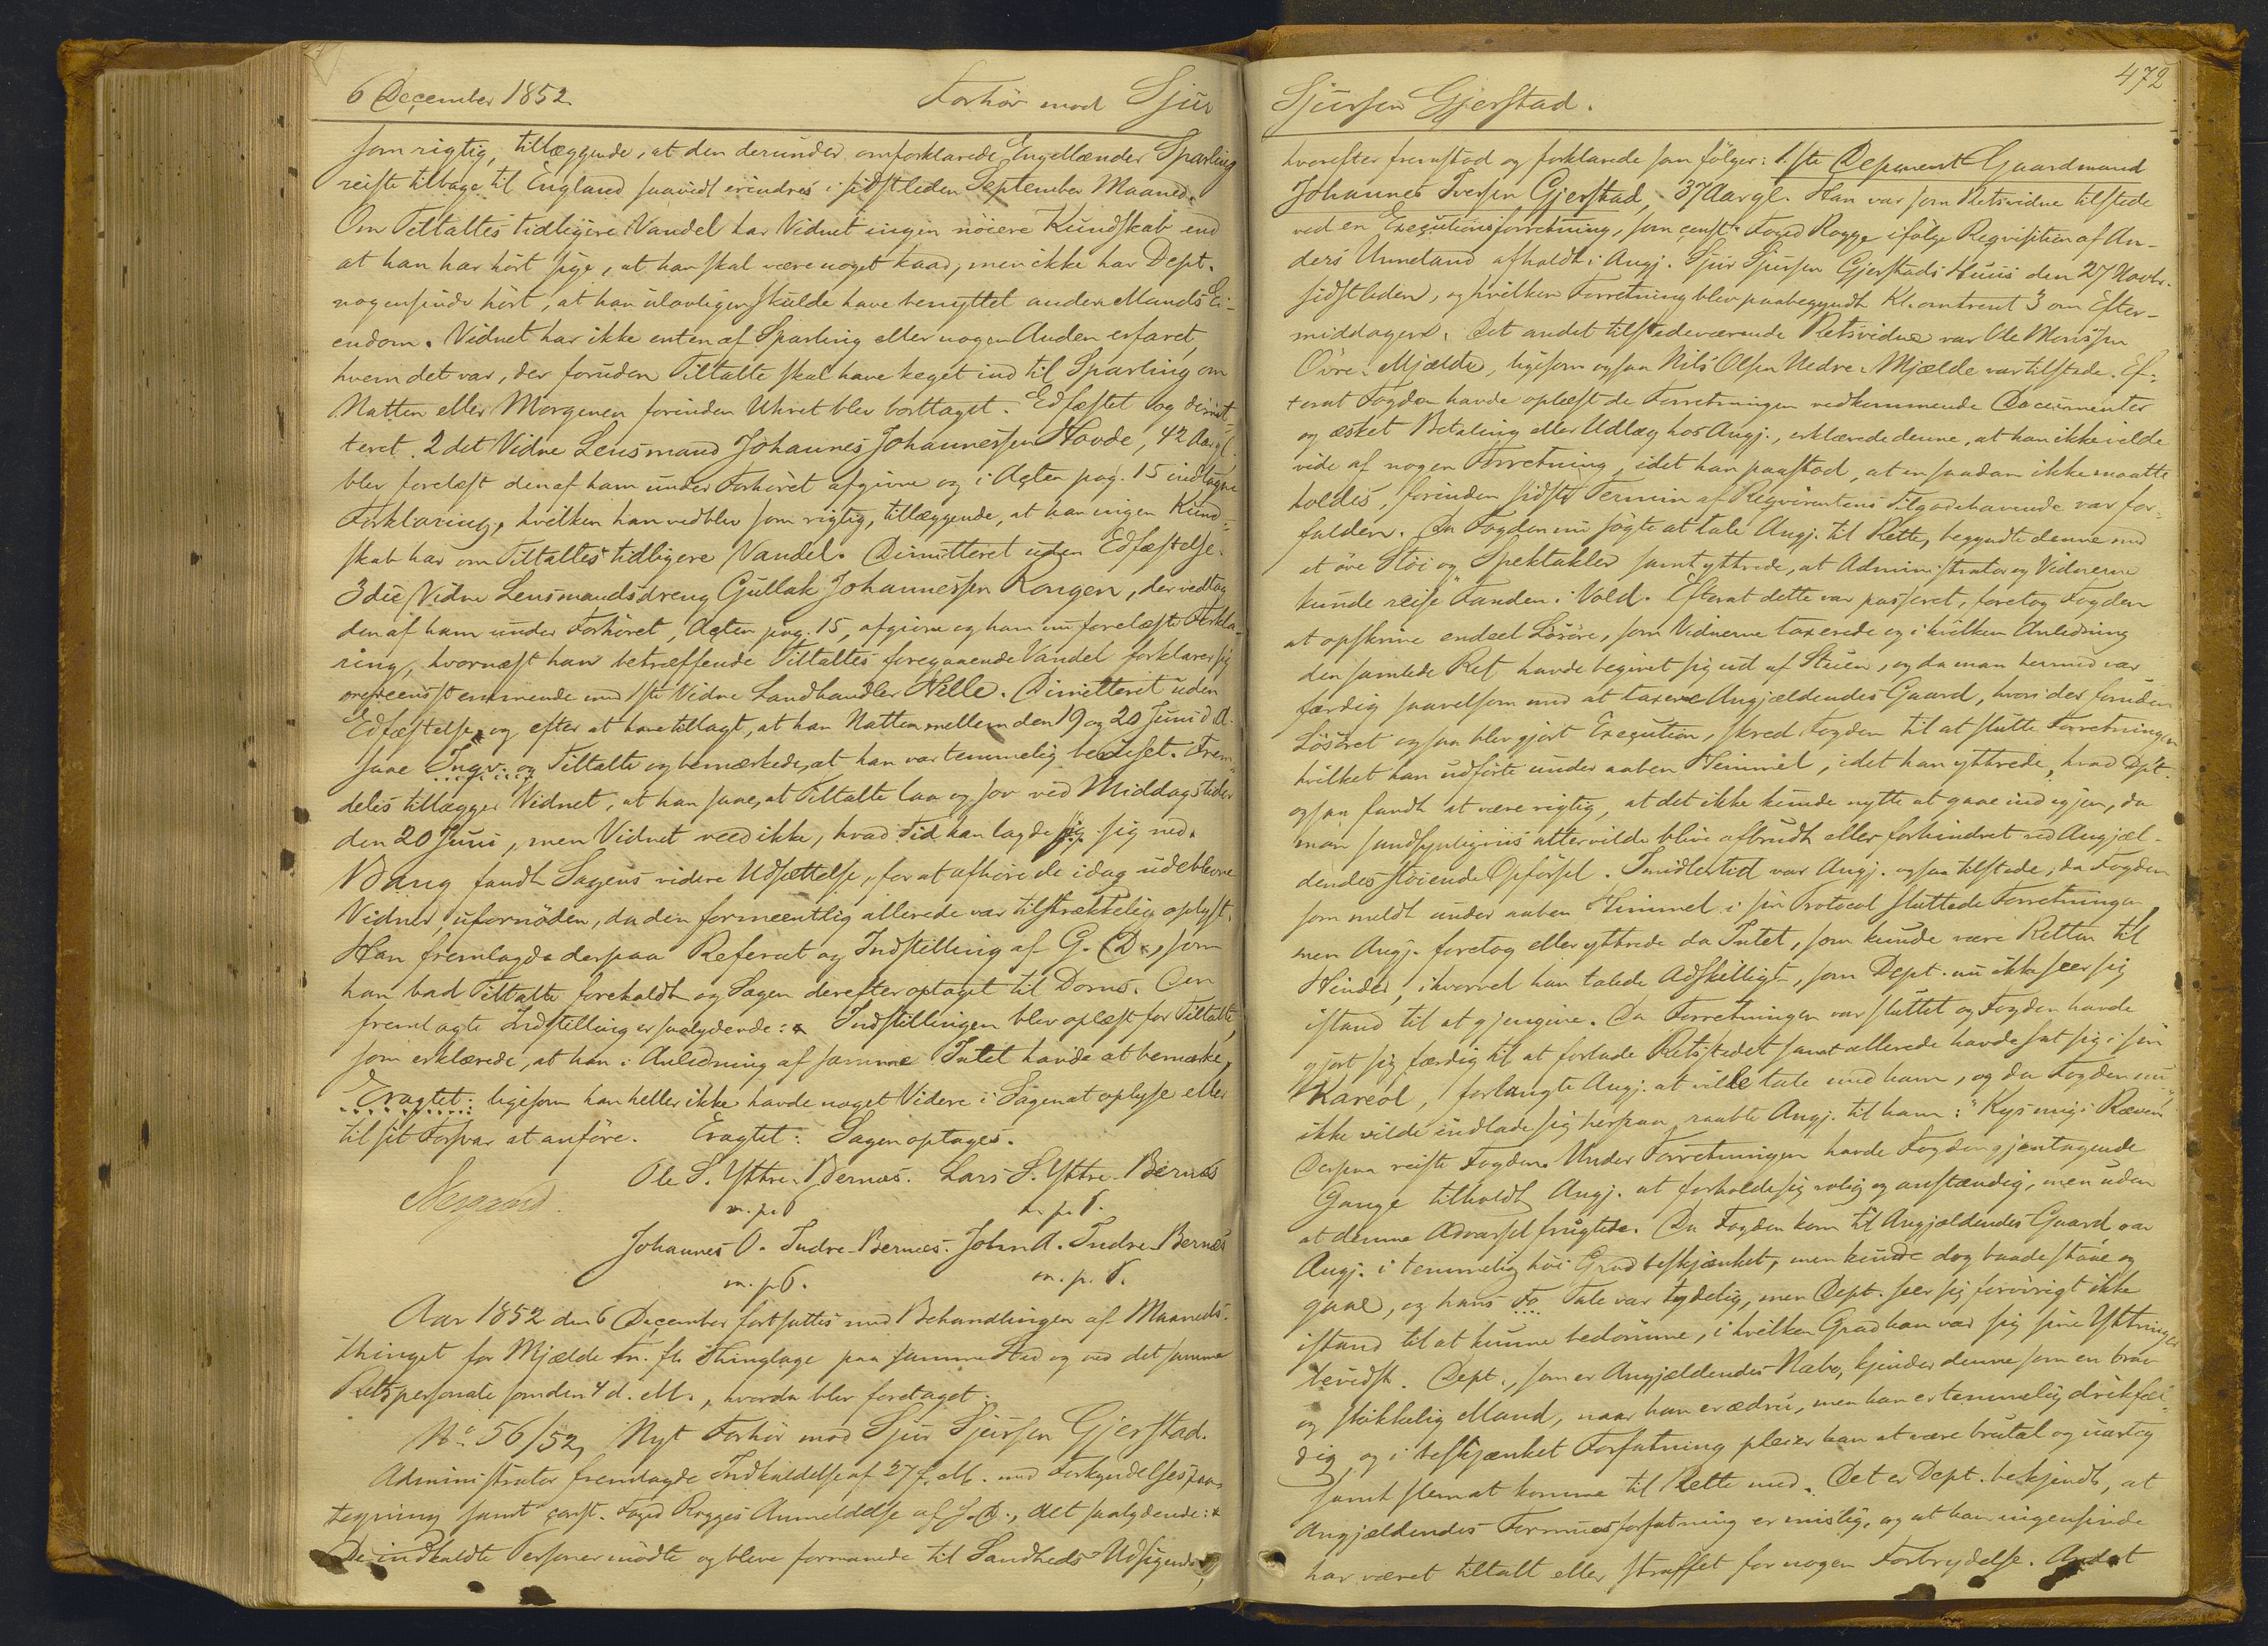 6 December 1852. Forhör mod Sjur
som rigtig, tillæggende, at den derunder omforklarede Engellænder Sparling
reiste tilbage til England saavidt erindres i sidstleden September Maaned.
Om Tiltaltes tidligere Vandel har Vidnet ingen nöiere Kundskab end
at han har hört sige, at han skal være noget kaad, men ikke har Dept.
nogensinde hört, at han ulovligen skulde have benyttet anden Mands Ei-
endom. Vidnet har ikke enten af Sparling eller nogen Anden erfaret,
hvem det var, der foruden Tiltalte skal have keget ind til Sparling om
Natten eller Morgenen forinden Uhret blev borttaget. Edfæstet og dimit-
teret. 2det Vidne Lensmand Johannes Johannessen Hovde, 42 Aar gl.
blev forelæst den af ham under Forhöret afgivne og i Acten pag. 15 indtagne
Forklaring, hvilken han vedblev som rigtig, tillæggende, at han ingen Kund-
skab har om Tiltaltes tidligere Vandel. Dimitteret uden Edfæstelse.
3die Vidne Lensmandsdreng Gullak Johannessen Rongen, der vedtog
den af ham under Forhöret, Acten pag. 15, afgivne og ham nu forelæste Forkla-
ring, hvornæst han betræffende Tiltaltes foregaaende Vandel forklarer sig
overeensstemmende med 1ste Vidne Landhandler Nille. Dimitteret uden
Edfæstelse, og efter at have tillagt, at han Natten mellem den 19 og 20 Juni d. A.
saae Ingv. og Tiltalte og bemærkede, at han var temmelig beruset. Frem-
deles tillægger Vidnet, at han saae, at Tiltalte laa og sov ved Middagstider
den 20 Juni, men Vidnet veed ikke, hvad Tid han lagde sig sig ned.
Bang fandt Sagens videre Udsættelse, for at afhöre de idag udeblevne
Vidner, ufornöden, da den formeentlig allerede var tilstrækkelig oplyst.
Han fremlagde derpaa Referat og Indstilling af G. D., som
han bad Tiltalte foreholdt og Sagen derefter optaget til Doms. Den
fremlagte Indstilling er saalydende: Indstillingen blev oplæst for Tiltalte,
som erklærede, at han i Anledning af samme Intet havde at bemærke,
Eragtet: ligesom han heller ikke havde noget Videre i Sagen at oplyse eller
til sit Forsvar at anföre. Eragtet: Sagen optages.
Ole S. Yttre-Bernæs. Lars S. Yttre-Bernæs
Neergaard. m. p. P. m. p. P.
Johannes O. Indre-Bernæs. John A. Indre-Bernæs
m. p. P. m. p. P.
Aar 1852 den 6 December fortsattes med Behandlingen af Maaneds-
thinget for Mjælde Thinglage paa samme Sted og ved det samme
Retspersonale som den 4 d. M., hvorda blev foretaget:
No 56/52, Nyt Forhör mod Sjur Sjursen Gjerstad.
Administrator fremlagde Indkaldelse af 27 f. M. med Forkyndelsespaa-
tegning samt const. Foged Rogges Anmeldelse af s. D., Alt saalydende:
De indkaldte Personer mödte og bleve formanede til Sandheds Udsigende,
472
Sjursen Gjerstad.
hvorefter fremstod og forklarede som fölger: 1ste Deponent Gaardmand
Johannes Iversen Gjerstad, 37 Aar gl. Han var som Retsvidne tilstede
ved en Executionsforretning, som const. Foged Rogge ifölge Reqvisition af An-
ders Unneland afholdt i Angj. Sjur Sjursen Gjerstads Huus den 27 Novbr.
sidstleden, og hvilken Forretning blev paabegyndt Kl. omtrent 3 om Efter-
middagen. Det andet tilstedeværende Retsvidne var Ole Monssen
Övre-Mjælde, ligesom ogsaa Nils Olsen Nedre-Mjælde var tilstede. Ef-
terat Fogden havde oplæst de Forretningen vedkommende Documenter
og æsket Betaling eller Udlæg hos Angj., erklærede denne, at han ikke vilde
vide af nogen Forretning, idet han paastod, at en saadan ikke maatte
holdes, forinden sidste Termin af Reqvirentens Tilgodehavende var for-
falden. Da Fogden nu sögte at tale Angj. til Rette, begyndte denne med
at öve Stöi og Spektakler samt yttrede, at Administrator og Vidnerne
kunde reise Fanden i Vold. Efterat dette var passeret, foretog Fogden
at opskrive endeel Lösöre, som Vidnerne taxerede og i hvilken Anledning
den samlede Ret havde begivet sig ud af Stuen, og da man hermed var
færdig saavelsom med at taxere Angjældendes Gaard, hvori der foruden
Lösöret ogsaa blev gjort Execution, skred Fogden til at slutte Forretningen
hvilket han udförte under aaben Himmel, idet han yttrede, hvad Dpt.
ogsaa fandt at være rigtig, at det ikke kunde nytte at gaae ind igjen, da
man sandsynligviis atter vilde blive afbrudt eller forhindret ved Angjæl-
dendes stöiende Opförsel. Imidlertid var Angj. ogsaa tilstede, da Fogden
som meldt under aaben Himmel i sin Protocol sluttede Forretningen
men Angj. foretog eller yttrede da Intet, som kunde være Retten til
Hinder, ihvorvel han talede Adskilligt, som Dept. nu ikke seer sig
istand til at gjengive. Da Forretningen var sluttet og Fogden havde
gjort sig færdig til at forlade Retsstedet samt allerede havde sat sig i sin
Kareol, forlangte Angj. at ville tale med ham, og da Fogden nu
ikke vilde indlade sig herpaa, raabte Angj. til ham: "Kys mig i Ræven"
Derpaa reiste Fogden. Under Forretningen havde Fogden gjentagende
Gange tilholdt Angj. at forholde sig rolig og anstændig, men uden
at denne Advarsel frugtede. Da Fogden kom til Angjældendes Gaard, var
Angj. i temmelig höi Grad beskjænket, men kunde dog baade staae og
gaae, og hans Fo Tale var tydelig, men Dept. seer sig forövrigt ikke
istand til at kunne bedömme, i hvilken Grad han var sig sine Yttringer
bevidst. Dept., som er Angjældendes Nabo, kjender denne som en brav
og skikkelig Mand, naar han er ædru, men han er temmelig drikfæl-
dig og i beskjænket Forfatning pleier han at være brutal og uartig
samt slem at komme til Rette med. Det er Dept. bekjendt, at
Angjældendes Formuesforfatning er mislig, og at han ingensinde
har været tiltalt eller straffet for nogen Forbrydelse. Andet